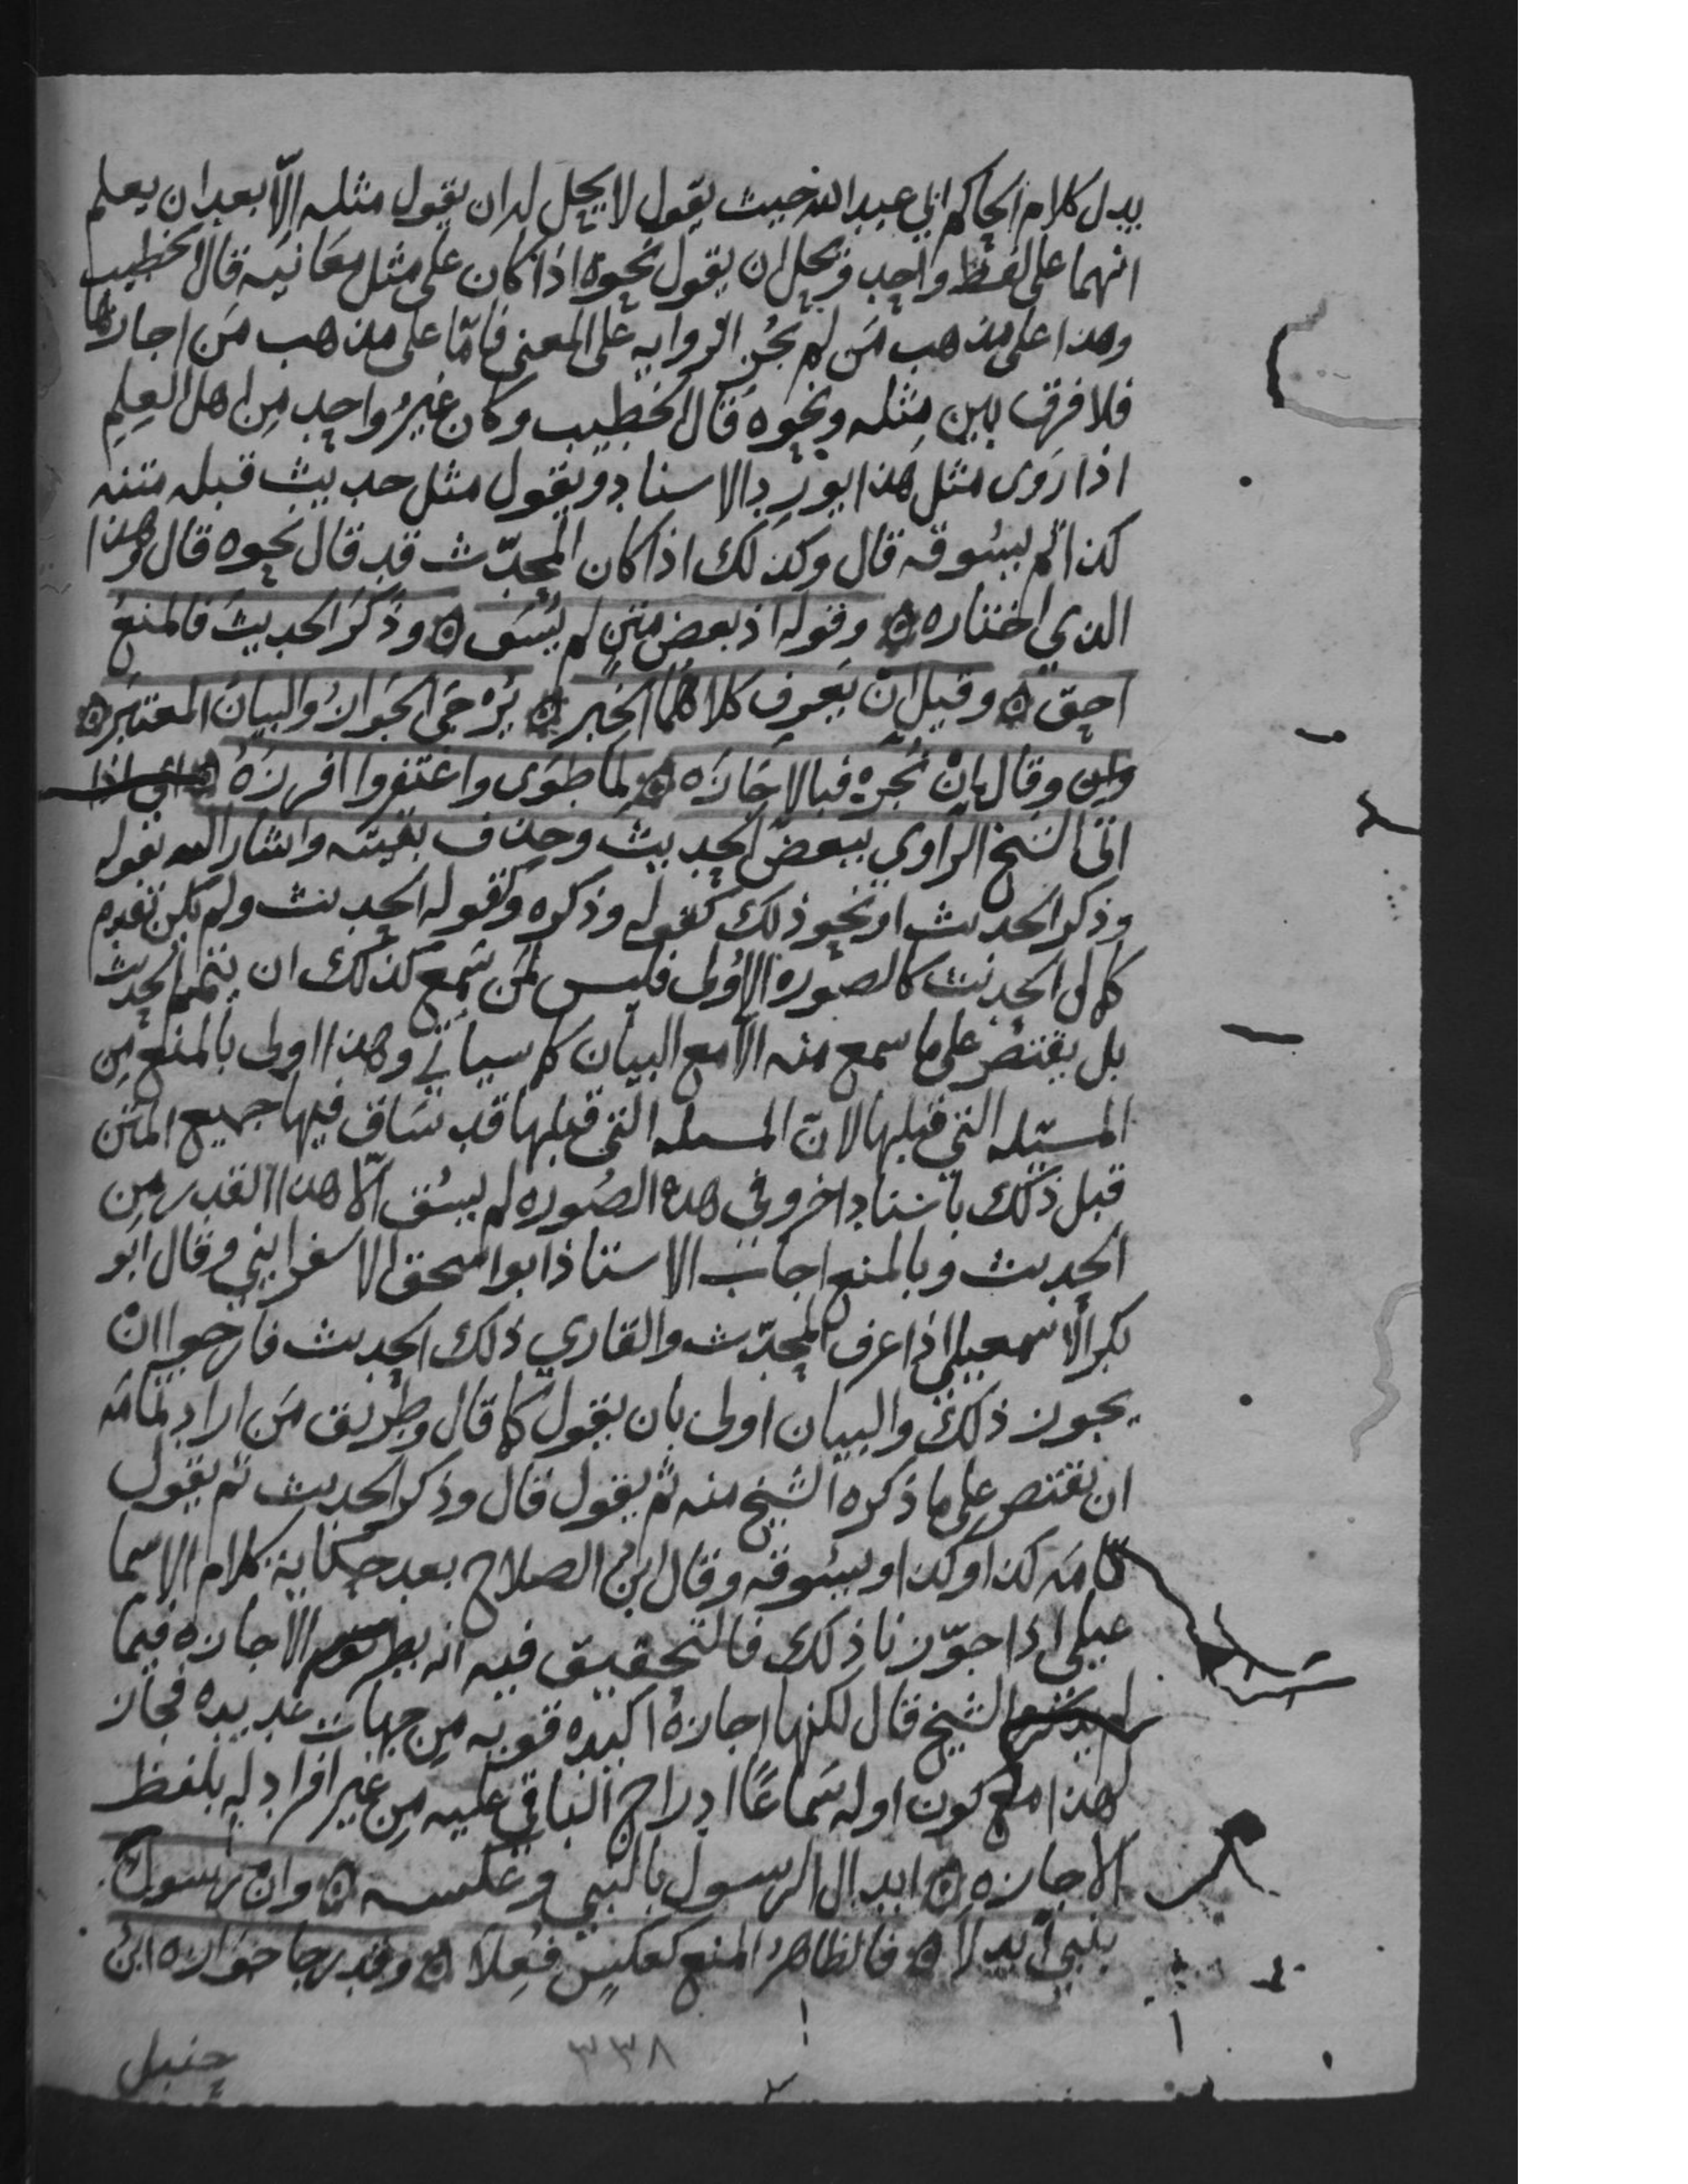 يدل كلام الحاكم ابي عبد الله حيث يقول لا يحل له ان يقول مثله الّا بعد ان يعلم
انهما على لفظ واحد ويحل ان يقول نحوه اذا كان على مثل معانيه قال الخطيب
وهذا على مذهب مَن لم يجُز الروايه على المعنى فامّا على مذهب مَن اجازها
فلا فرق بين مِثله ونحوه قال الخطيب وكان غيرُ واحد مِن اهل العِلم
اذا رَوى مثل هَذا يورد الاسناد ويقول مثل حديث قبله متنه
كذا ثم يسُوقه قال وكذلك اذا كان المحدّث قد قال نحوه قال وهذا
الذي اختاره ۞ وقوله اذ بعض متنٍ لم يُسَق ۞ وذَكَرَ الحديثَ فالمنعُ
احقّ ۞ وقيل انْ يَعرِف كلاهُما الخبر ۞ يُرْجَى الجَوازُ والبيانُ المعتبَر ۞
وقال اِنْ نُجِزْه فبالاِجَازَه ۞ لما طوَى واغتفروا افرازَهُ ۞ اي اذا
اتى الشيخ الراوي ببعض الحديث وحذف بقيته واشار اليه بقوله
وذكر الحديث او نحو ذلك كقوله وذكره وكقوله الحديث ولم يكن تقدم
كمال الحديث كالصوره الاُولى فليس لمَن سَمع كذلك ان يتمم الحديث
بل يقتصُر على ما سمع منه الّا مع البيان كما سياتي وهذا اولى بالمنع مِن
المسئله التي قبلها لانّ المسئله التي قبلها قد سَاق فيها جميع المتن
قبل ذلك باسناد اخر وفي هذه الصُوره لم يسُق الّا هذا القدر مِن
الحديث وبالمنع اجاب الاستاذ ابو اسحق الاسفرايني وقال ابو
بكر الاسمعيلي اذا عرف المحدّث والقاري ذلك الحديث فارجوا انْ
يجوز ذلك والبيان اولى بان يقول كما قال وطريق مَن اراد تمامَه
ان يقتصر على ما ذكره الشيخ منه ثم يقول قال وذكر الحديث ثم يقول
تمامَه كذا وكذا ويسُوقه وقال ابنُ الصلاح بعد حكاية كلام الاسما
عيلي اذا جوّزنا ذلك فالتحقيق فيه انه بطريق الاجازه فيما
لم يذكره الشيخ قال لكنها اجازةٌ اكيده قويه مِن جهات عديده فجاز
لهذا مع كون اوله سَماعًا ادراج الباقي عليه مِن غير افراد له بلفظ
الاجازه ۞ ابدال الرسول بالنبي وعكسه ۞ وان رسولٌ
بنبيّ اُبدِلا ۞ فالظاهرُ المنع كعكسٍ فعِلا ۞ وقد رجا جوازه ابنُ
٣٣٨
حنبل